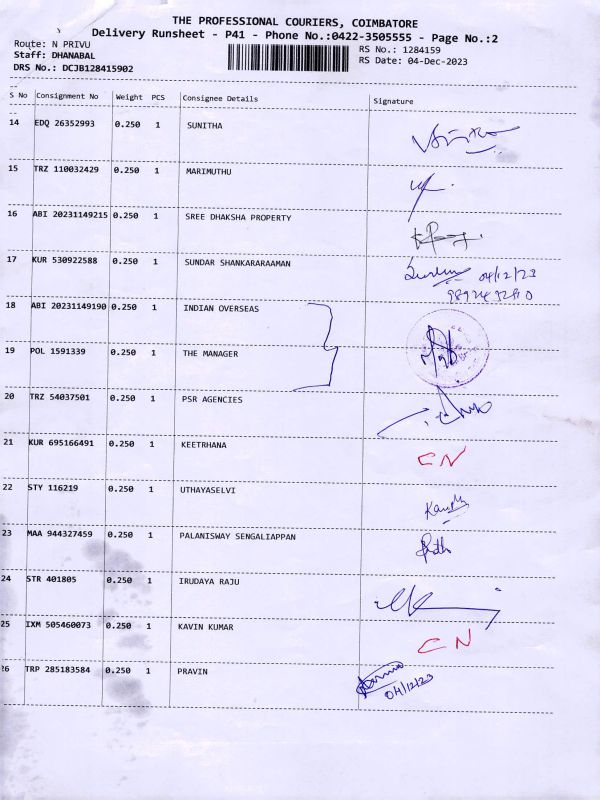 THE PROFESSIONAL COURIERS, COIMBATORE
Delivery Runsheet - P41 - Phone No.:0422-3505555 - Page No.:2
Route: N PRIVU RS No.: 1284159
Staff: DHANABAL RS Date: 04-Dec-2023
DRS No.: DCJB128415902
S No Consignment No Weight PCS Consignee Details Signature
14 EDQ 26352993 0.250 1 SUNITHA
15 TRZ 110032429 0.250 1 MARIMUTHU
16 ABI 20231149215 0.250 1 SREE DHAKSHA PROPERTY
17 KUR 530922588 0.250 1 SUNDAR SHANKARARAAMAN
04/12/23
18 ABI 20231149190 0.250 1 INDIAN OVERSEAS
19 POL 1591339 0.250 1 THE MANAGER
20 TRZ 54037501 0.250 1 PSR AGENCIES
21 KUR 695166491 0.250 1 KEETRHANA
CN
22 STY 116219 0.250 1 UTHAYASELVI
23 MAA 944327459 0.250 1 PALANISWAY SENGALIAPPAN
24 STR 401805 0.250 1 IRUDAYA RAJU
25 IXM 505460073 0.250 1 KAVIN KUMAR
CN
26 TRP 285183584 0.250 1 PRAVIN
04/12/23